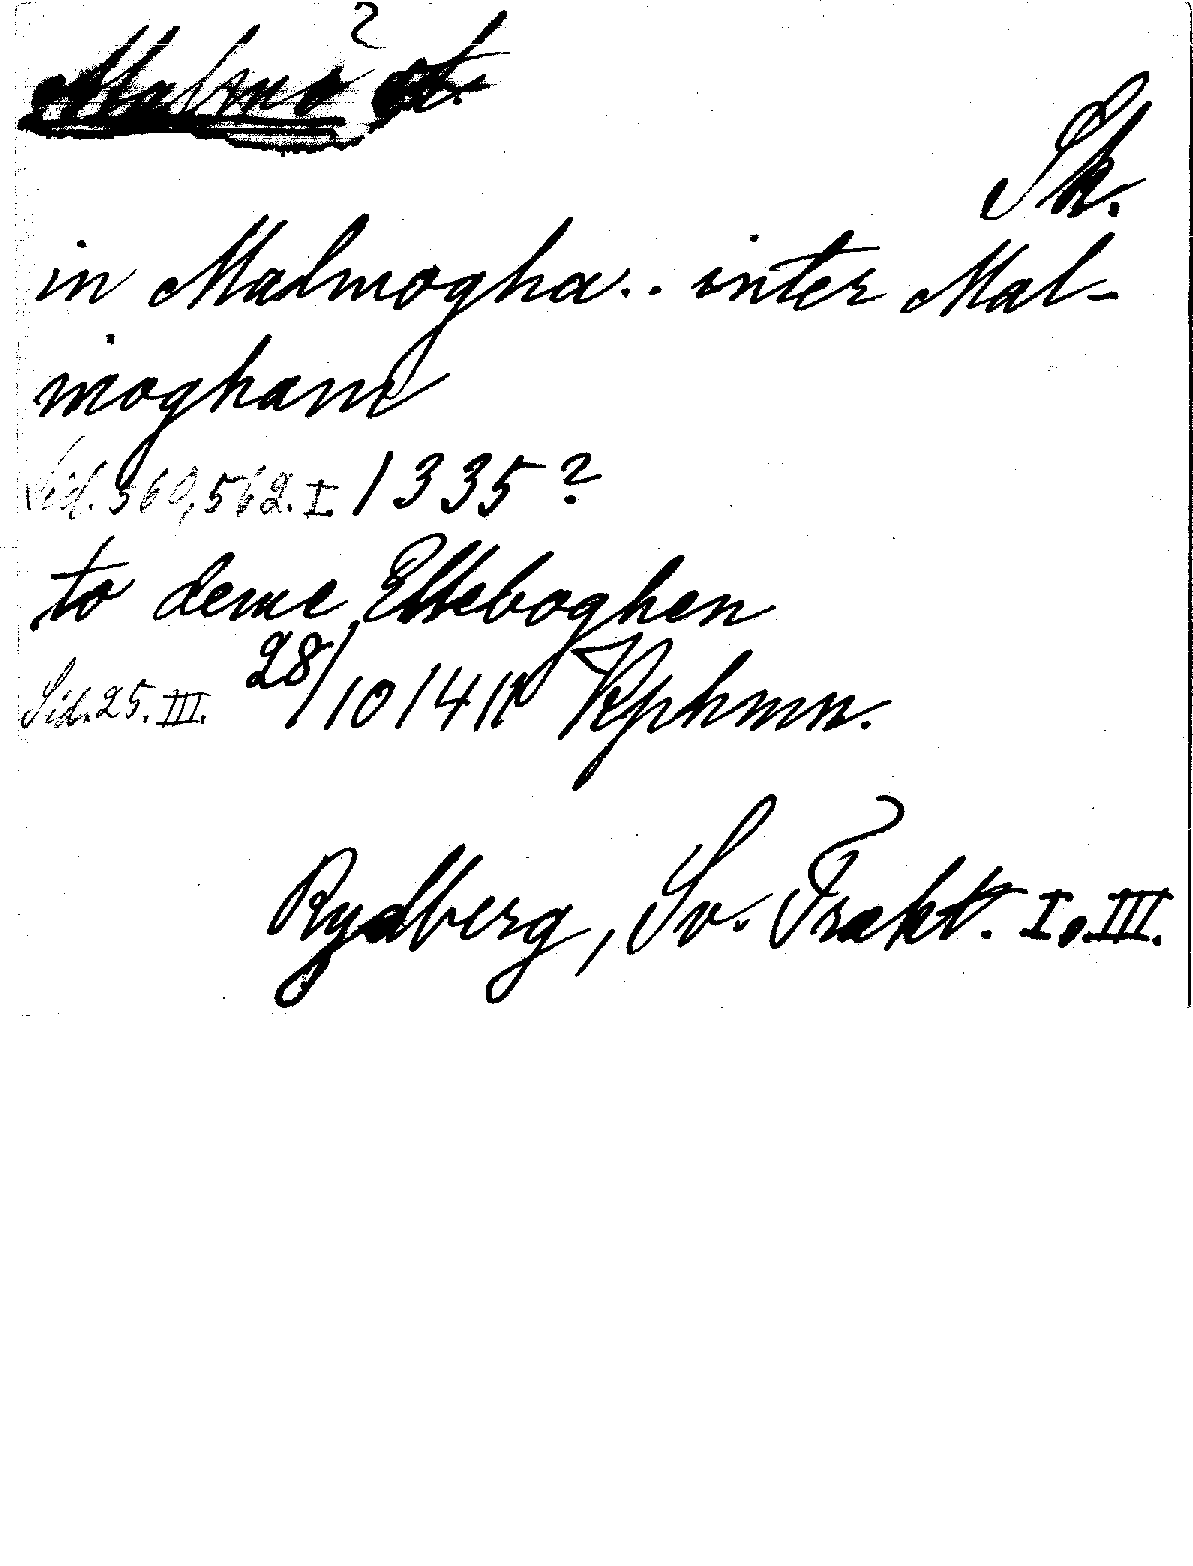 ?
Malmö st.
Sk.
in Malmogha.. inter Mal-
mogham
Sid. 560, 562. I. 1335?
to deme Elleboghen
Sid. 25. III. 28/10 1411 Kphmn.
Rydberg, Sv. Trakt. I o. III.